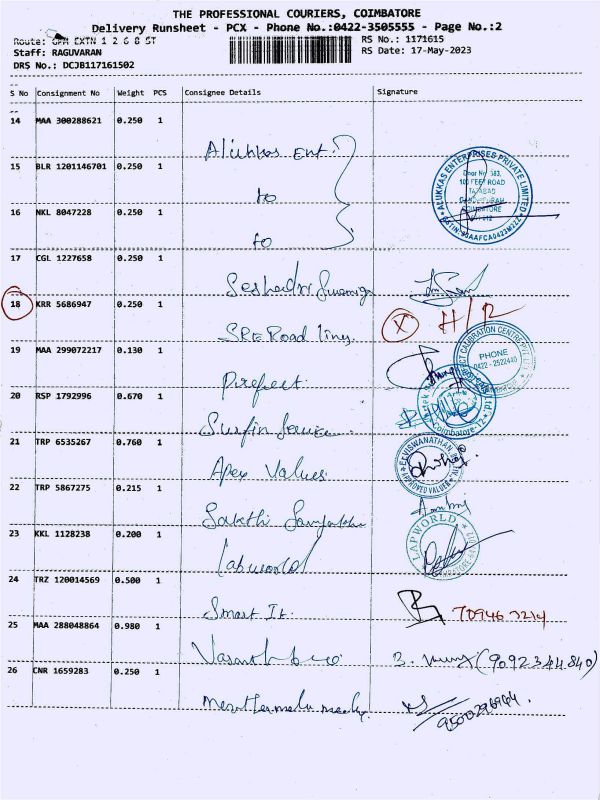 THE PROFESSIONAL COURIERS, COIMBATORE
Delivery Runsheet - PCX - Phone No.:0422-3505555 - Page No.:2
Route: GPM EXTN 1 2 6 8 ST RS No.: 1171615
Staff: RAGUVARAN RS Date: 17-May-2023
DRS No.: DCJB117161502
S No Consignment No Weight PCS Consignee Details Signature
14 MAA 300288621 0.250 1
Alukkas Ent.
15 BLR 1201146701 0.250 1
to
16 NKL 8047228 0.250 1
to
ALUKKAS ENTERPRISES PRIVATE LIMITED
Door No 583,
100 FEET ROAD
TATABAD
COIMBATORE
17 CGL 1227658 0.250 1
Seshadri
18 KRR 5686947 0.250 1
X H/R
SRE Road lines.
19 MAA 299072217 0.130 1
PHONE
0422 - 2522440
Pirefect
20 RSP 1792996 0.670 1
Surfin Service
Coimbatore-12
21 TRP 6535267 0.760 1
Apex Values
APPROVED VALUER
22 TRP 5867275 0.215 1
Sakthi
23 KKL 1128238 0.200 1
Labworld
LAPWORLD
24 TRZ 120014569 0.500 1
Smart It
25 MAA 288048864 0.980 1
(9092344840)
26 CNR 1659283 0.250 1